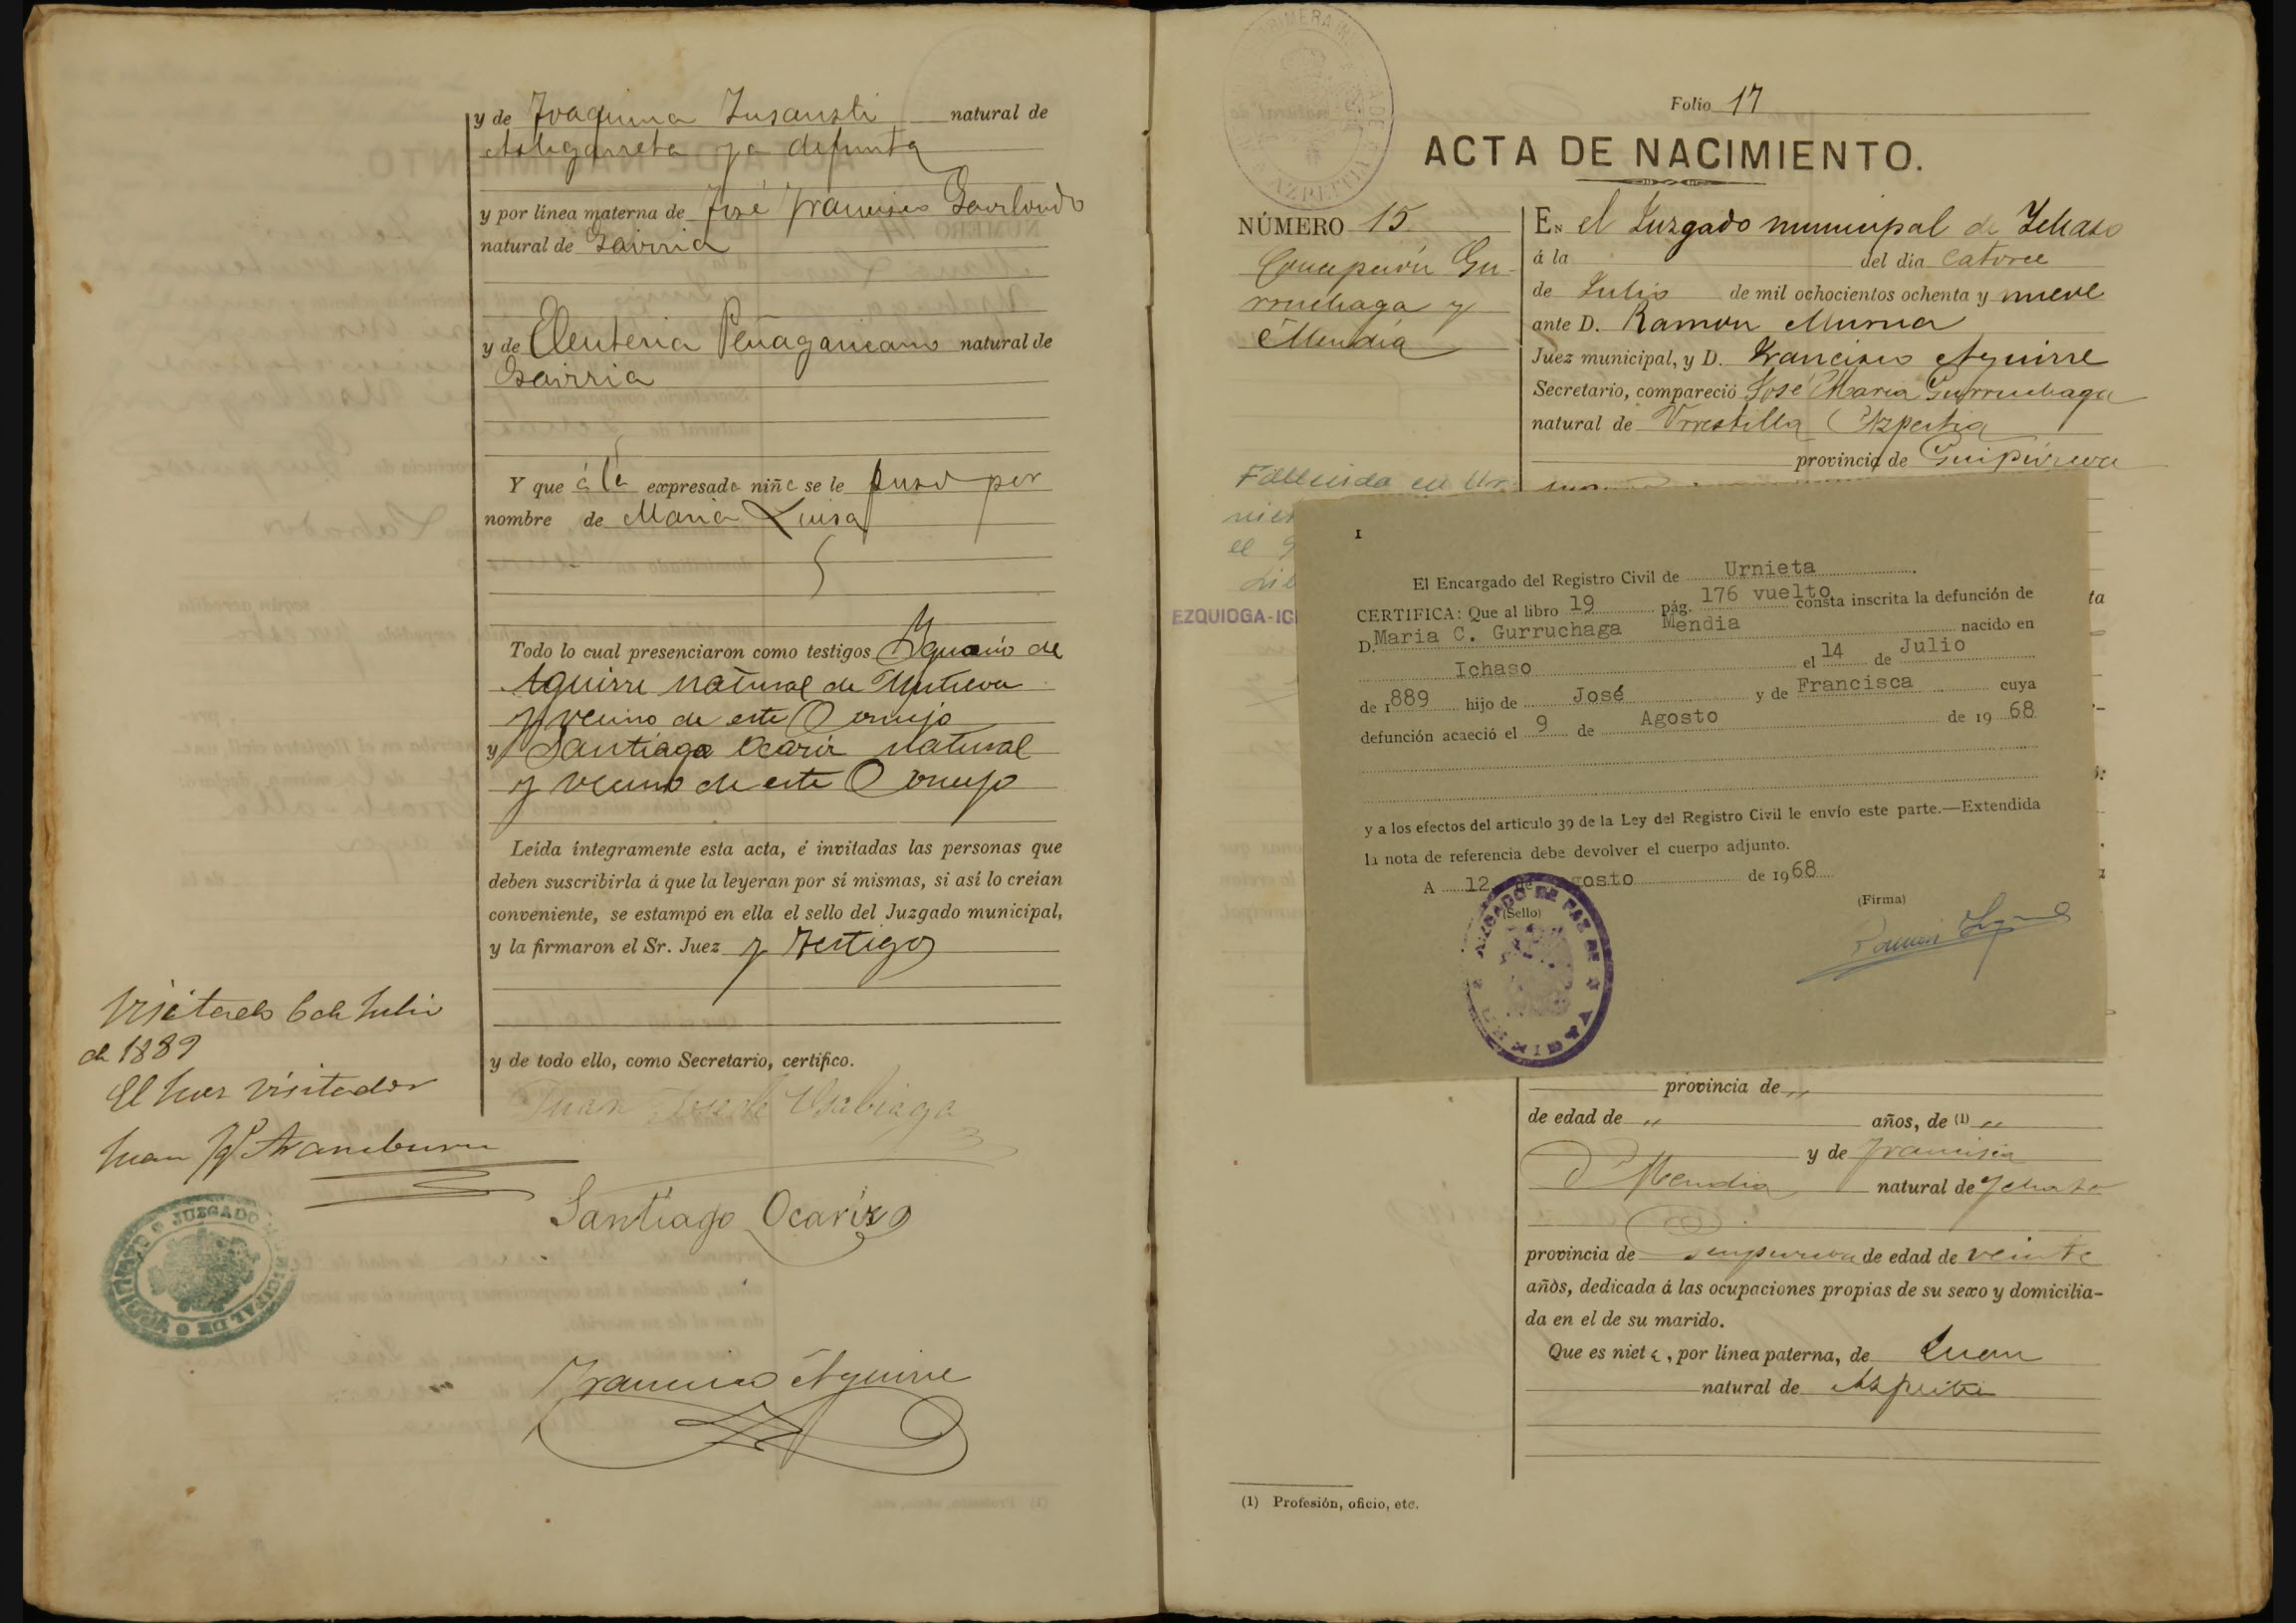 y de Joaquina Insausti natural de
Astigarreta ya defunta
y por línea materna de José Francisco Garilondo
natural de Gaviria
y de Eleuteria Peñagaricano natural de
Gaviria
Y que á la expresada niña se le puso por
nombre de Maria Luisa
Todo lo cual presenciaron como testigos Ygnacio de
Aguirre natural de Mutiloa
y vecino de este Concejo
y Santiago Ocariz natural
y vecino de este Concejo
Leída íntegramente esta acta, é invitadas las personas que
deben suscribirla á que la leyeran por sí mismas, si así lo creían
conveniente, se estampó en ella el sello del Juzgado municipal,
y la firmaron el Sr. Juez y testigos
y de todo ello, como Secretario, certifico.
Visitado 6 de Julio
de 1889
El Juez visitador
Juan Aramburu
JUZGADO MUNICIPAL DE
Juan José de Usabiaga
Santiago Ocariz
Francisco Aguirre
Folio 17
ACTA DE NACIMIENTO.
NÚMERO 15
Concepción Gu-
rruchaga y
Mendia
EN el Juzgado municipal de Ichaso
á la del dia catorce
de Julio de mil ochocientos ochenta y nueve
ante D. Ramon Murua
Juez municipal, y D. Francisco Aguirre
Secretario, compareció José Maria Gurruchaga
natural de Urrestilla Azpeitia
provincia de Guipúzcoa
Fallecida en Ur-
niet
el 9
Lib
EZQUIOGA-IC
I
El Encargado del Registro Civil de Urnieta.
CERTIFICA: Que al libro 19 pág. 176 vuelto consta inscrita la defunción de
D. Maria C. Gurruchaga Mendia nacido en
Ichaso el 14 de Julio
de 1889 hijo de José y de Francisca cuya
defunción acaeció el 9 de Agosto de 1968
y a los efectos del articulo 39 de la Ley del Registro Civil le envío este parte.—Extendida
la nota de referencia debe devolver el cuerpo adjunto.
A 12 de gosto de 1968
(Sello)
(Firma)
JUZGADO DE PAZ DE
provincia de "
de edad de " años, de (1) "
y de Francisca
Mendia natural de Ichaso
provincia de Guipuzcoa de edad de veinte
años, dedicada á las ocupaciones propias de su sexo y domicilia-
da en el de su marido.
Que es nieta, por línea paterna, de Juan
natural de Azpeitia
(1) Profesión, oficio, etc.